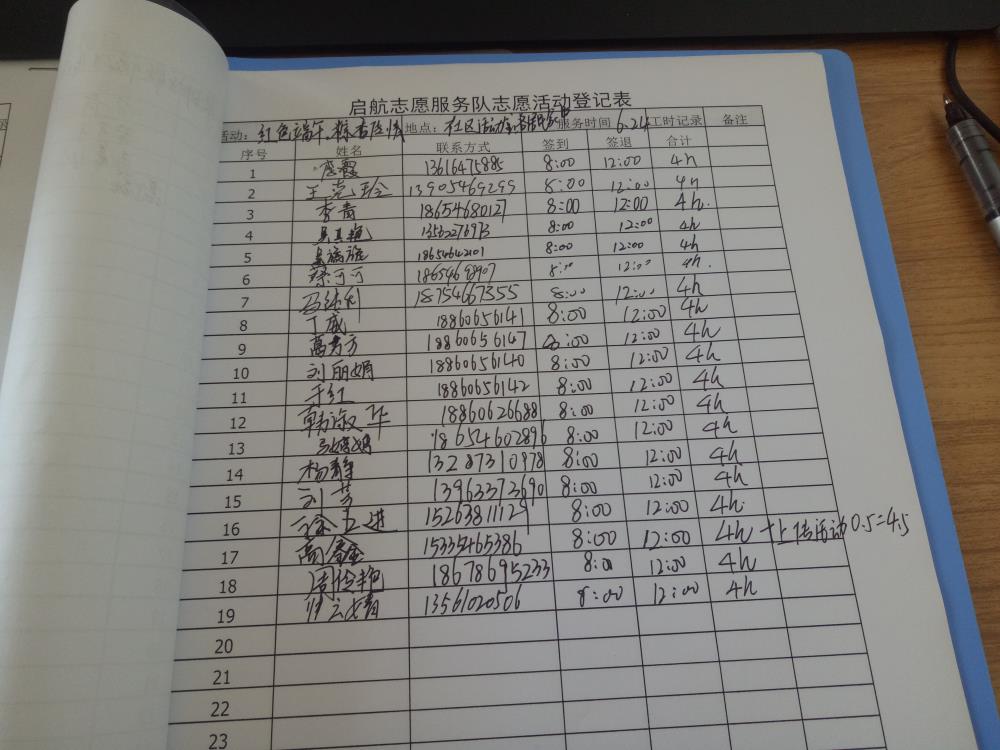 启航志愿服务队志愿活动登记表
活动: 红色端午.粽香 地点: 社区活动室 服务时间 6.24 工时记录 备注
序号 姓名 联系方式 签到 签退 合计
1 13616475885 8:00 12:00 4h
2 王克珍 13905469295 8:00 12:00 4h
3 李青 18654680127 8:00 12:00 4h.
4 8:00 12:00 4h
5 18654642101 8:00 12:00 4h
6 蔡可可 18654698907 8:00 12:00 4h.
7 18754667355 8:00 12:00 4h
8 丁威 18860656141 8:00 12:00 4h
9 高秀方 18860656147 8:00 12:00 4h
10 刘丽娟 18860656140 8:00 12:00 4h
11 于红 18860656142 8:00 12:00 4h
12 韩淑华 18860626688 8:00 12:00 4h
13 18654602896 8:00 12:00 4h
14 杨静 13287310978 8:00 12:00 4h
15 刘芳 13963373690 8:00 12:00 4h
16 15263811129 8:00 12:00 4h.
17 15335465386 8:00 12:00 4h +上传活动0.5=4.5
18 周俊艳 18678695233 8:00 12:00 4h
19 13561020506 8:00 12:00 4h
20
21
22
23